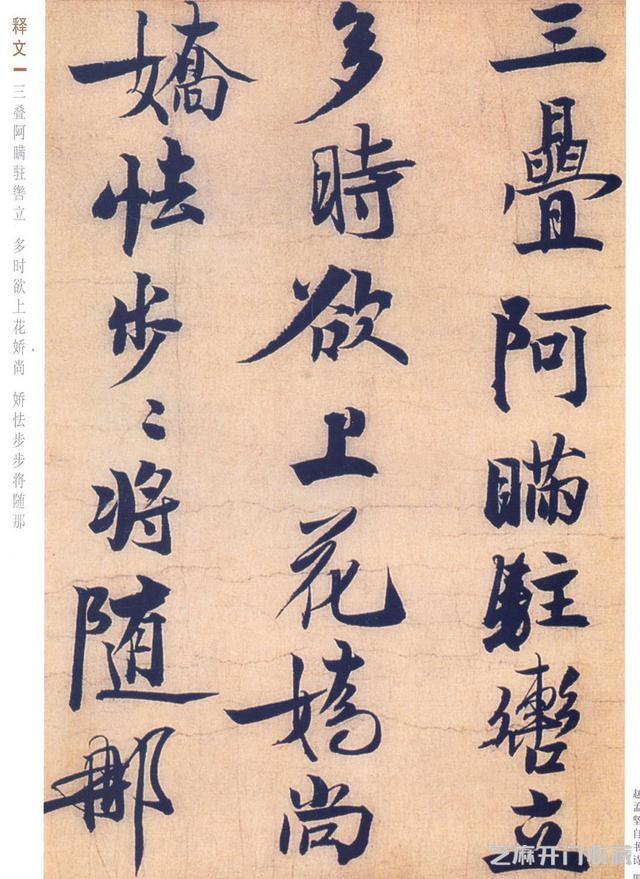 三疊阿瞞駐轡立
多時欲上花嬌尚
嬌怯步〻將随那
释文
三叠阿瞒驻辔立 多时欲上花娇尚 娇怯步步将随那
赵孟坚自书诗
芝麻开门收藏